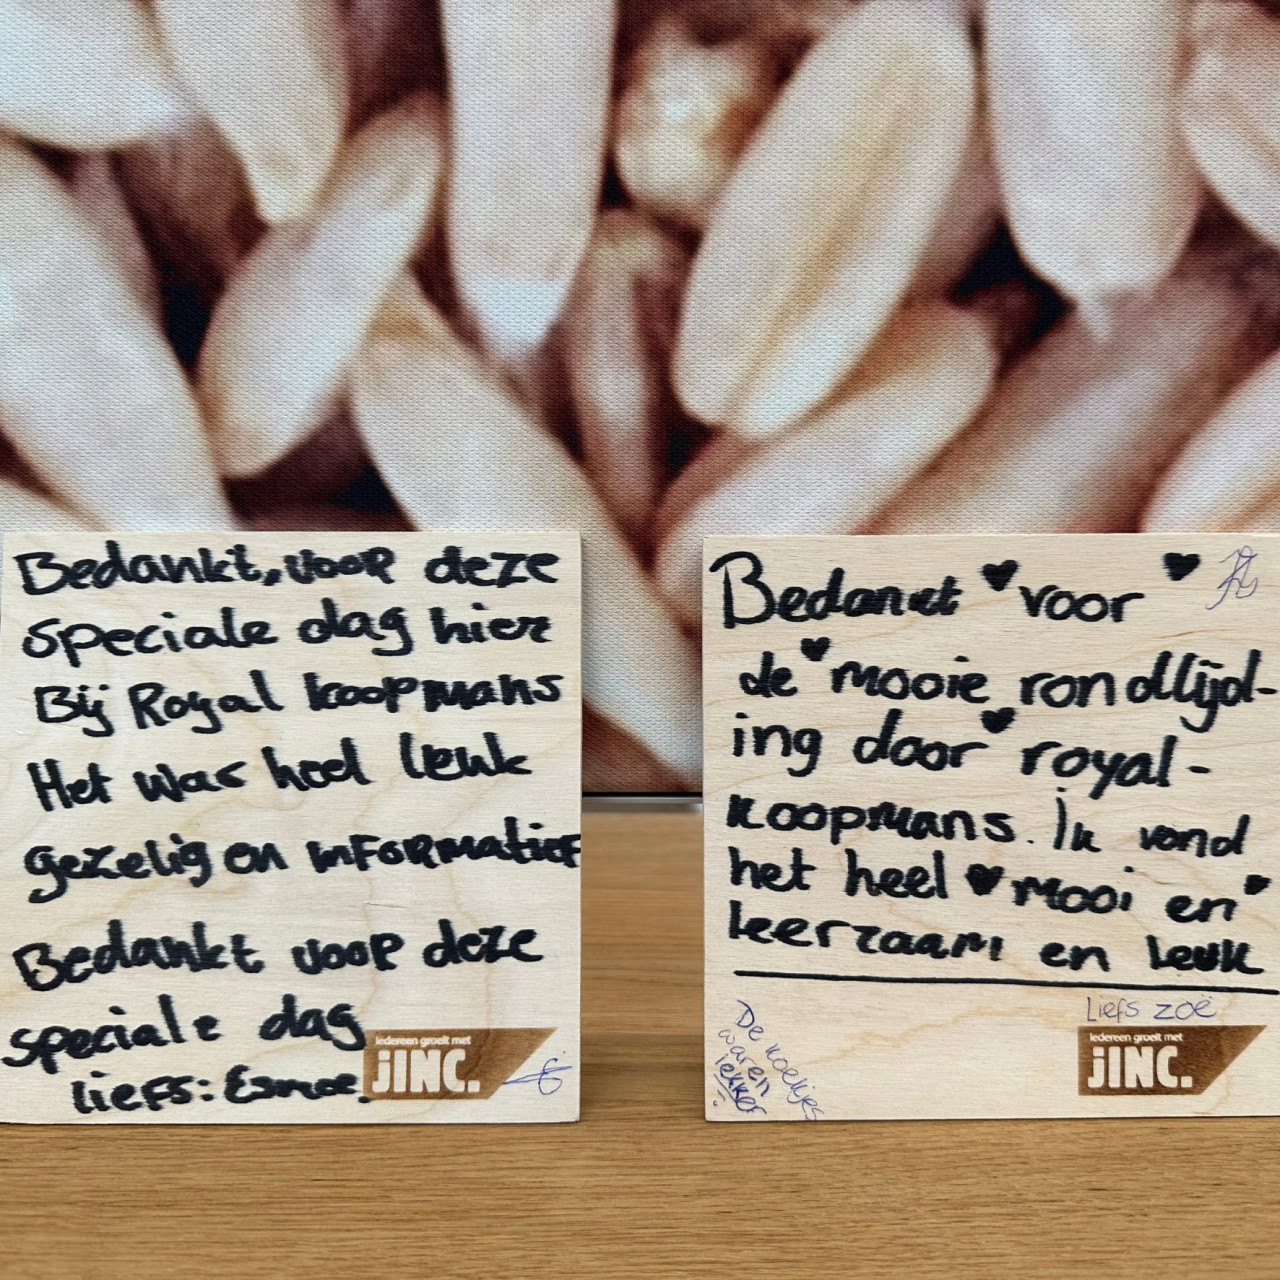 Bedankt, voor deze
speciale dag hier
Bij Royal koopmans
Het was heel leuk
gezelig en informatief
Bedankt voor deze
speciale dag
liefs: Esmee.
Iedereen groeit met
JINC.
Bedankt voor
de mooie rondlijd-
ing door royal-
koopmans. Ik vond
het heel mooi en
leerzaam en leuk
Liefs zoë
De koekjes
waren
lekker
Iedereen groeit met
JINC.